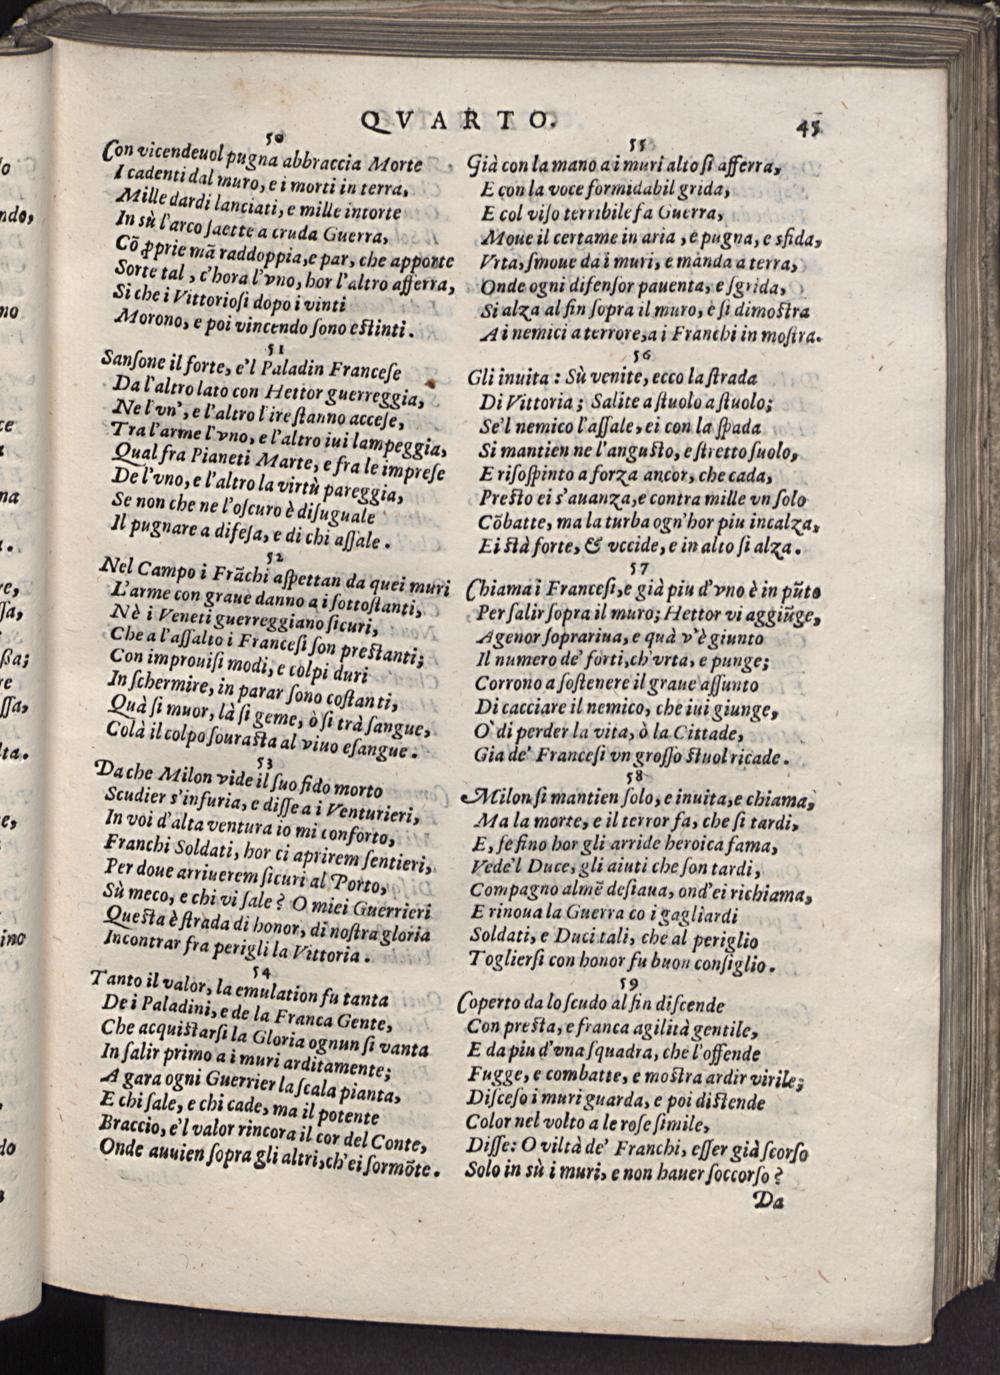 QVARTO.
45
50
Con vicendeuol pugna abbraccia Morte
I cadenti dal muro, e i morti in terra,
Mille dardi lanciati, e mille intorte
In sù l'arco ſaette a cruda Guerra,
Cõ ꝓprie mã raddoppia, e par, che apporte
Sorte tal, c'hora l'vno, hor l'altro afferra,
Si che i Vittorioſi dopo i vinti
Morono, e poi vincendo ſono eſtinti.
51
Sanſone il forte, e'l Paladin Franceſe
Da l'altro lato con Hettor guerreggia,
Ne l'vn', e l'altro l'ire ſtanno acceſe,
Tra l'arme l'vno, e l'altro iui lampeggia,
Qual fra Pianeti Marte, e fra le impreſe
De l'vno, e l'altro la virtù pareggia,
Se non che ne l'oſcuro è diſuguale
Il pugnare a difeſa, e di chi aſſale.
52
Nel Campo i Frãchi aſpettan da quei muri
L'arme con graue danno a i ſottoſtanti,
Nè i Veneti guerreggiano ſicuri,
Che a l'aſſalto i Franceſi ſon preſtanti;
Con improuiſi modi, e colpi duri
In ſchermire, in parar ſono coſtanti,
Quà ſi muor, là ſi geme, ò ſi trà ſangue,
Colà il colpo ſouraſta al viuo eſangue.
53
Da che Milon vide il ſuo fido morto
Scudier s'infuria, e diſſe a i Venturieri,
In voi d'alta ventura io mi conforto,
Franchi Soldati, hor ci aprirem ſentieri,
Per doue arriuerem ſicuri al Porto,
Sù meco, e chi vi ſale? O miei Guerrieri
Queſta è ſtrada di honor, di noſtra gloria
Incontrar fra perigli la Vittoria.
54
Tanto il valor, la emulation fu tanta
De i Paladini, e de la Franca Gente,
Che acquiſtarſi la Gloria ognun ſi vanta
In ſalir primo a i muri arditamente;
A gara ogni Guerrier la ſcala pianta,
E chi ſale, e chi cade, ma il potente
Braccio, e'l valor rincora il cor del Conte,
Onde auuien ſopra gli altri, ch'ei ſormõte.
55
Già con la mano a i muri alto ſi afferra,
E con la voce formidabil grida,
E col viſo terribile fa Guerra,
Moue il certame in aria, e pugna, e sfida,
Vrta, ſmoue da i muri, e manda a terra,
Onde ogni difenſor pauenta, e ſgrida,
Si alza al fin ſopra il muro, e ſi dimoſtra
A i nemici a terrore, a i Franchi in moſtra.
56
Gli inuita: Sù venite, ecco la ſtrada
Di Vittoria; Salite a ſtuolo a ſtuolo;
Se'l nemico l'aſſale, ei con la ſpada
Si mantien ne l'anguſto, e ſtretto ſuolo,
E riſoſpinto a forza ancor, che cada,
Preſto ei s'auanza, e contra mille vn ſolo
Cõbatte, ma la turba ogn'hor piu incalza,
Ei ſtà forte, & vccide, e in alto ſi alza.
57
Chiama i Franceſi, e già piu d'vno è in pũto
Per ſalir ſopra il muro; Hettor vi aggiũge,
Agenor ſoprariua, e quà v'è giunto
Il numero de' forti, ch'vrta, e punge;
Corrono a ſoſtenere il graue aſſunto
Di cacciare il nemico, che iui giunge,
O' di perder la vita, ò la Cittade,
Gia de' Franceſi vn groſſo ſtuol ricade.
58
Milon ſi mantien ſolo, e inuita, e chiama,
Ma la morte, e il terror fa, che ſi tardi,
E, ſe fino hor gli arride heroica fama,
Vede'l Duce, gli aiuti che ſon tardi,
Compagno almẽ deſiaua, ond'ei richiama,
E rinoua la Guerra co i gagliardi
Soldati, e Duci tali, che al periglio
Toglierſi con honor fu buon conſiglio.
59
Coperto da lo ſcudo al fin diſcende
Con preſta, e franca agilità gentile,
E da piu d'vna ſquadra, che l'offende
Fugge, e combatte, e moſtra ardir virile;
Diſceſo i muri guarda, e poi diſtende
Color nel volto a le roſe ſimile,
Diſſe: O viltà de' Franchi, eſſer già ſcorſo
Solo in sù i muri, e non hauer ſoccorſo?
Da